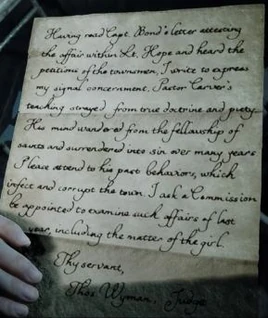 Having read Capt. Bond's letter attesting
the affair within Lt. Hope and heard the
petitions of the townsmen, I write to express
my signal concernment. Pastor Carver's
teaching strayed from true doctrine and piety.
His mind wandered from the fellowship of
saints and surrendered into sin over many years
I leave attend to his past behaviors, which
infect and corrupt the town. I ask a Commission
be appointed to examine such affairs of last
year, including the matter of the girl.
Thy servant,
Thos Wyman, Judge